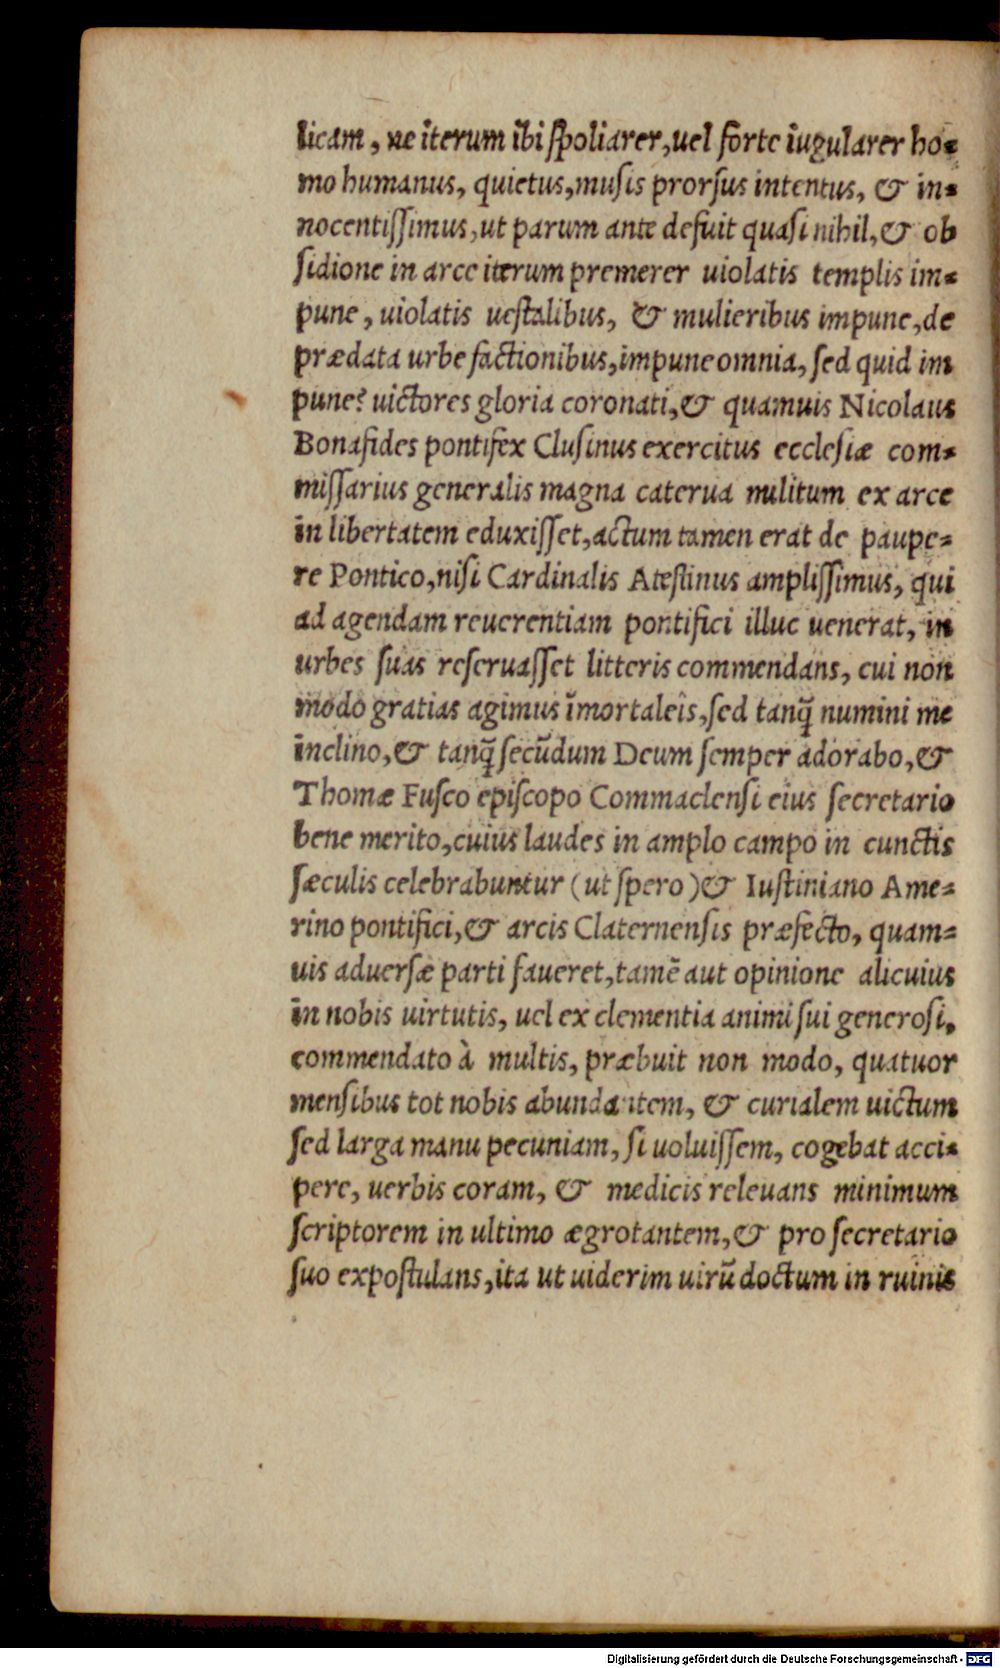 licam, ne iterum ibi spoliarer, uel forte iugularer ho-
mo humanus, quietus, musis prorsus intentus, & in-
nocentissimus, ut parum ante defuit quasi nihil, & ob
sidione in arce iterum premerer uiolatis templis im-
pune, uiolatis uestalibus, & mulieribus impune, de
prædata urbe factionibus, impune omnia, sed quid im
pune? uictores gloria coronati, & quamuis Nicolaus
Bonafides pontifex Clusinus exercitus ecclesiæ com-
missarius generalis magna caterua militum ex arce
in libertatem eduxisset, actum tamen erat de paupe-
re Pontico, nisi Cardinalis Atestinus amplissimus, qui
ad agendam reuerentiam pontifici illuc uenerat, in
urbes suas reseruasset litteris commendans, cui non
modo gratias agimus īmortaleis, sed tanq̃ numini me
inclino, & tanq̃ secūdum Deum semper adorabo, &
Thomæ Fusco episcopo Commaclensi eius secretario
bene merito, cuius laudes in amplo campo in cunctis
sæculis celebrabuntur (ut spero) & Iustiniano Ame-
rino pontifici, & arcis Claternensis præfecto, quam-
uis aduersæ parti faueret, tamē aut opinione alicuius
in nobis uirtutis, uel ex clementia animi sui generosi,
commendato à multis, præbuit non modo, quatuor
mensibus tot nobis abundantem, & curialem uictum
sed larga manu pecuniam, si uoluissem, cogebat acci-
pere, uerbis coram, & medicis releuans minimum
scriptorem in ultimo ægrotantem, & pro secretario
suo expostulans, ita ut uiderim uirū doctum in ruinis
Digitalisierung gefördert durch die Deutsche Forschungsgemeinschaft - DFG